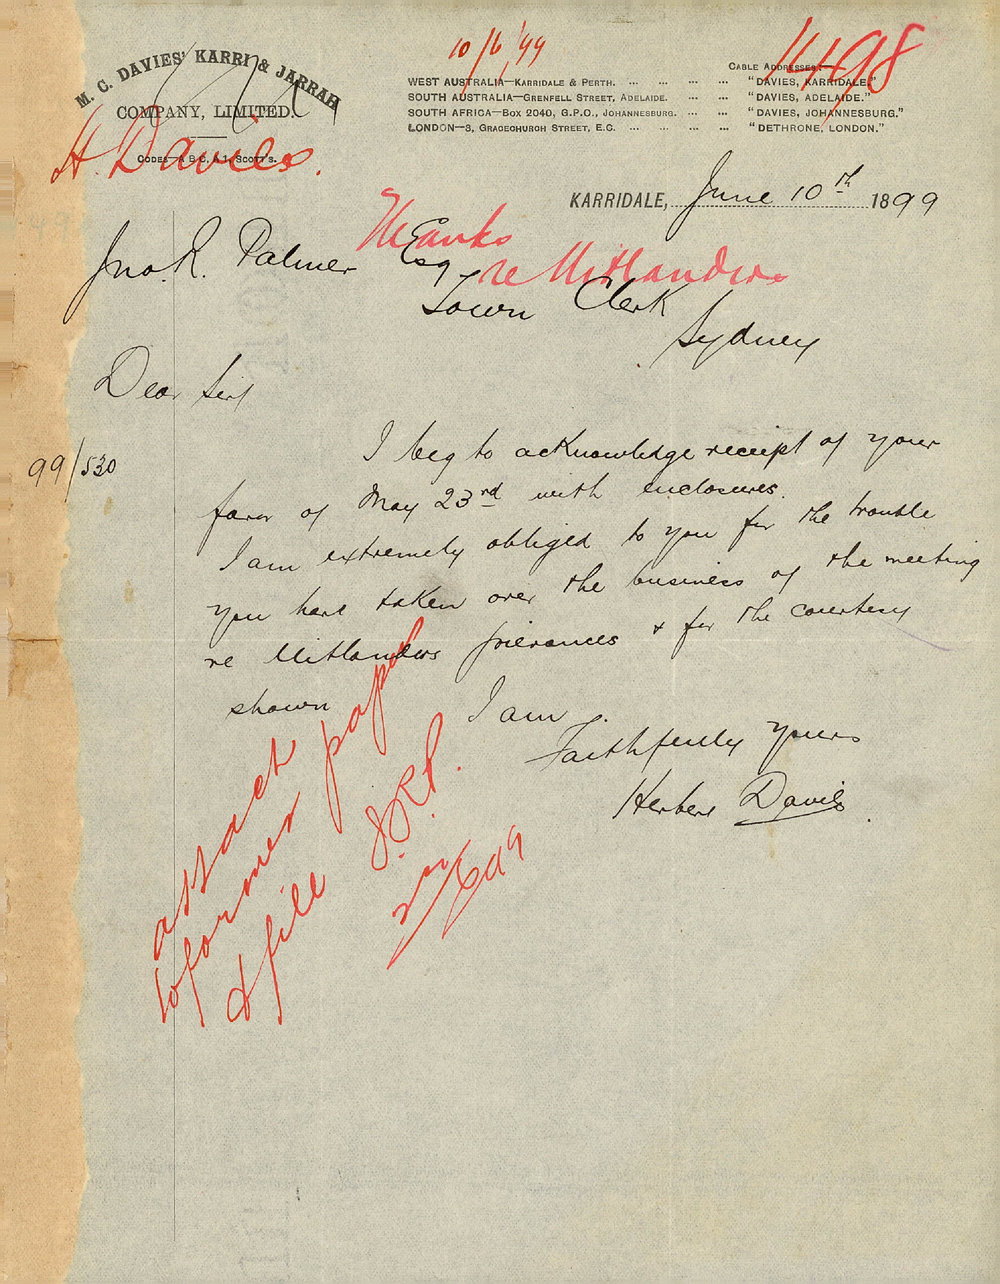 M. C. DAVIES' KARRI & JARRAH
COMPANY, LIMITED.
CODES—A B C, A 1, SCOTT'S.
H. Davies.
10/6/99
1498
WEST AUSTRALIA—KARRIDALE & PERTH. ... ... ... ...
SOUTH AUSTRALIA—GRENFELL STREET, ADELAIDE. ... ...
SOUTH AFRICA—BOX 2040, G.P.O., JOHANNESBURG. ... ...
LONDON—3, GRACECHURCH STREET, E.C. ... ... ... ...
CABLE ADDRESSES:—
"DAVIES, KARRIDALE."
"DAVIES, ADELAIDE."
"DAVIES, JOHANNESBURG."
"DETHRONE, LONDON."
KARRIDALE, June 10th 1899
Thanks
re Uitlanders
Jno. R. Palmer Esq
Town Clerk
Sydney
Dear Sir
99/530
I beg to acknowledge receipt of your
favor of May 23rd with enclosures.
I am extremely obliged to you for the trouble
you have taken over the business of the meeting
re Uitlanders grievances & for the courtesy
shown
I am
Faithfully yours
Herbert Davies
attach
to former papers
& file
J.R.P.